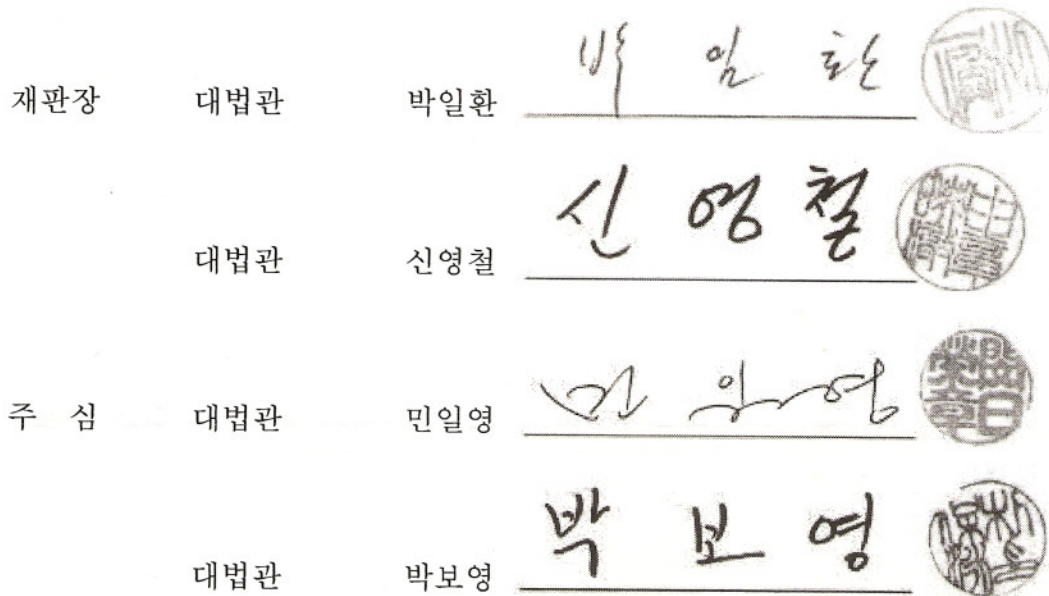 재판장 대법관 박일환 박 일 환
대법관 신영철 신 영 철
주 심 대법관 민일영 민 일 영
대법관 박보영 박 보 영